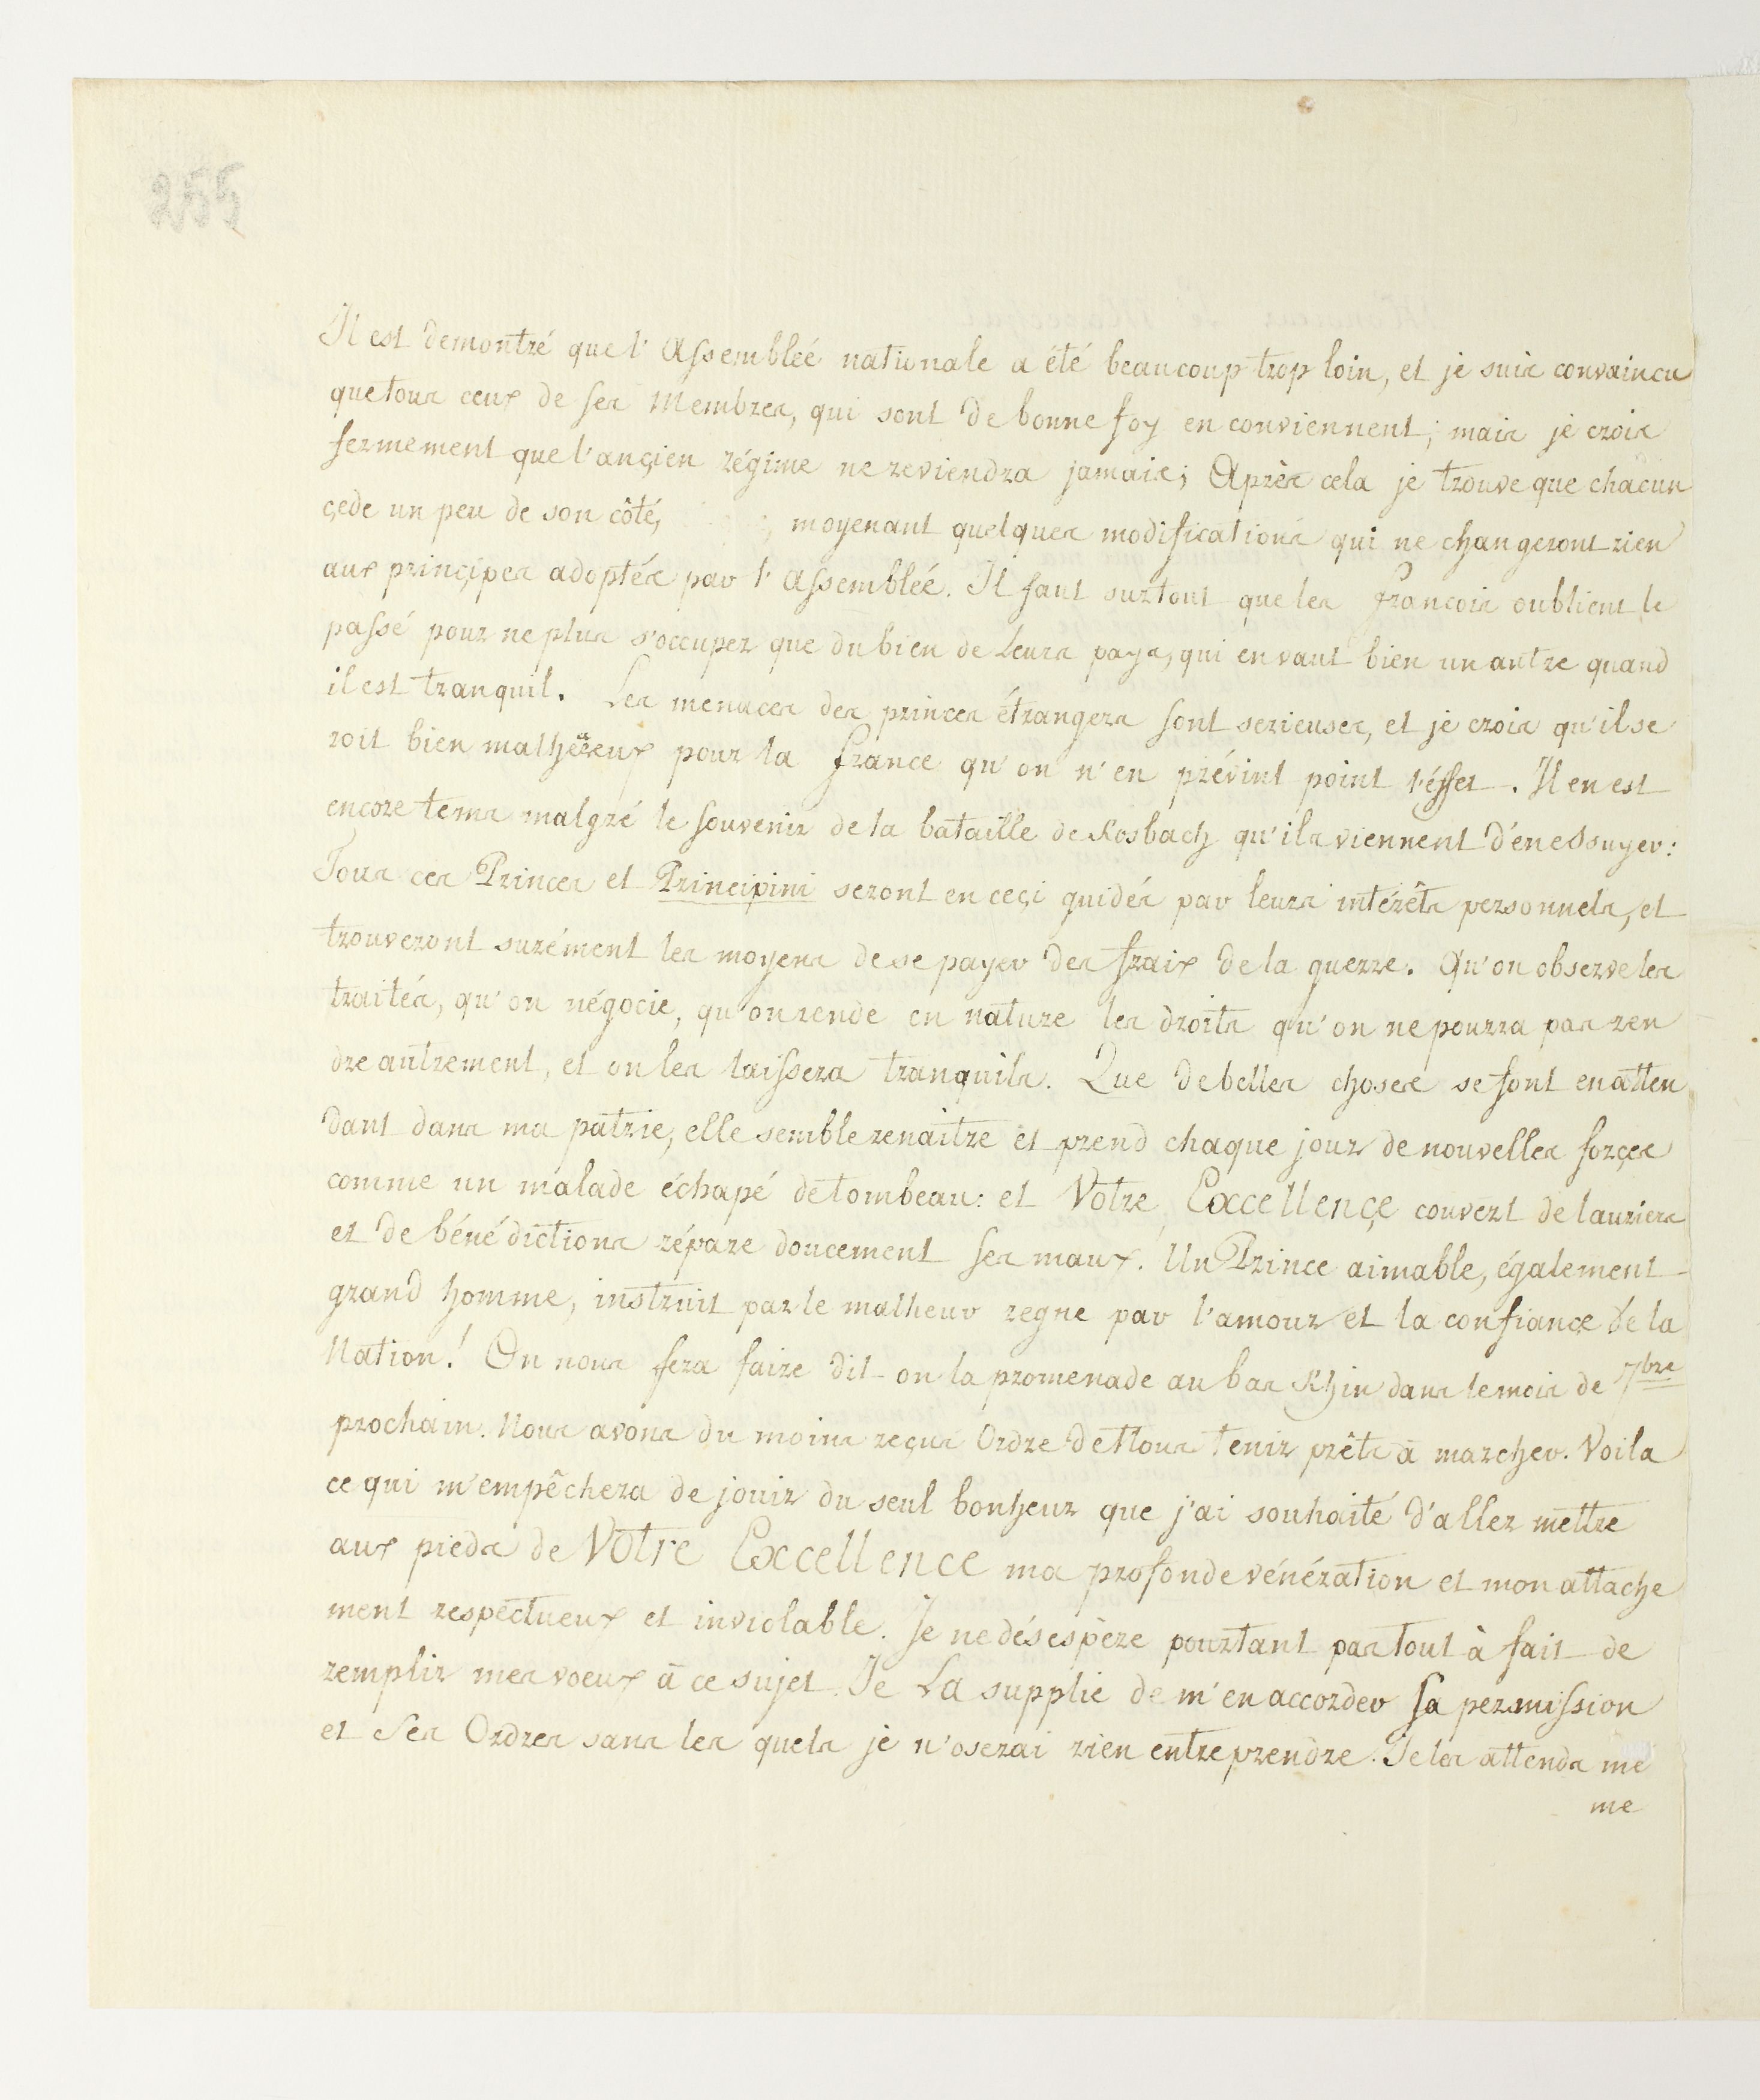 255
Il est demontré que l'Assembleé nationale a été beaucoup trop loin, et je suis convaincu
que tous ceux de ses Membres, qui sont de bonne foy en conviennent; mais je crois
fermement que l'ançien régime ne reviendra jamais; Après cela je trouve que chacun
çede un peu de son côté, moyenant quelques modifications qui ne changeront rien
aux prinçipes adoptés par l'Assembleé. Il faut surtout que les françois oublient le
passé pour ne plus s'occuper que du bien de Leurs pays, qui en vaut bien un autre quand
il est tranquil. Les menaces des princes étrangers sont serieuses, et je crois qu'il se
roit bien malheureux pour la france qu'on n'en prévint point l'éffet. Il en est
encore tems malgré le souvenir de la bataille de Rosbach qu'ils viennent d'én essuyer:
Tous ces Princes et Principini seront en ceçi guidés par leurs intérêts personnels, et
trouveront surément les moyens de se payer des fraix de la guerre. Qu'on observe les
traités, qu'on négocie, qu'on rende en nature les droits qu'on ne pourra pas ren
dre autrement, et on les laissera tranquils. Que de belles choses se font en atten
dant dans ma patrie, elle semble renaitre et prend chaque jour de nouvelles forçes
comme un malade échapé de tombeau: et Votre Excellençe couvert de lauriers
et de bénédictions répare doucement ses maux. Un Prince aimable, également
grand homme, instruit par le malheur regne par l'amour et la confiance de la
Nation! On nous fera faire dit-on la promenade au bas Rhin dans le mois de 7bre
prochain. Nous avons du moins reçus Ordre de Nous tenir prêts à marcher. Voila
ce qui m'empêchera de jouir du seul bonheur que j'ai souhaité d'aller mettre
aux pieds de Votre Excellence ma profonde vénération et mon attache
ment respectueux et inviolable. Je ne désespère pourtant pas tout à fait de
remplir mes voeux à ce sujet. Je La supplie de m'en accorder sa permission
et Ses Ordres sans les quels je n'oserai rien entreprendre. Je les attends me
me